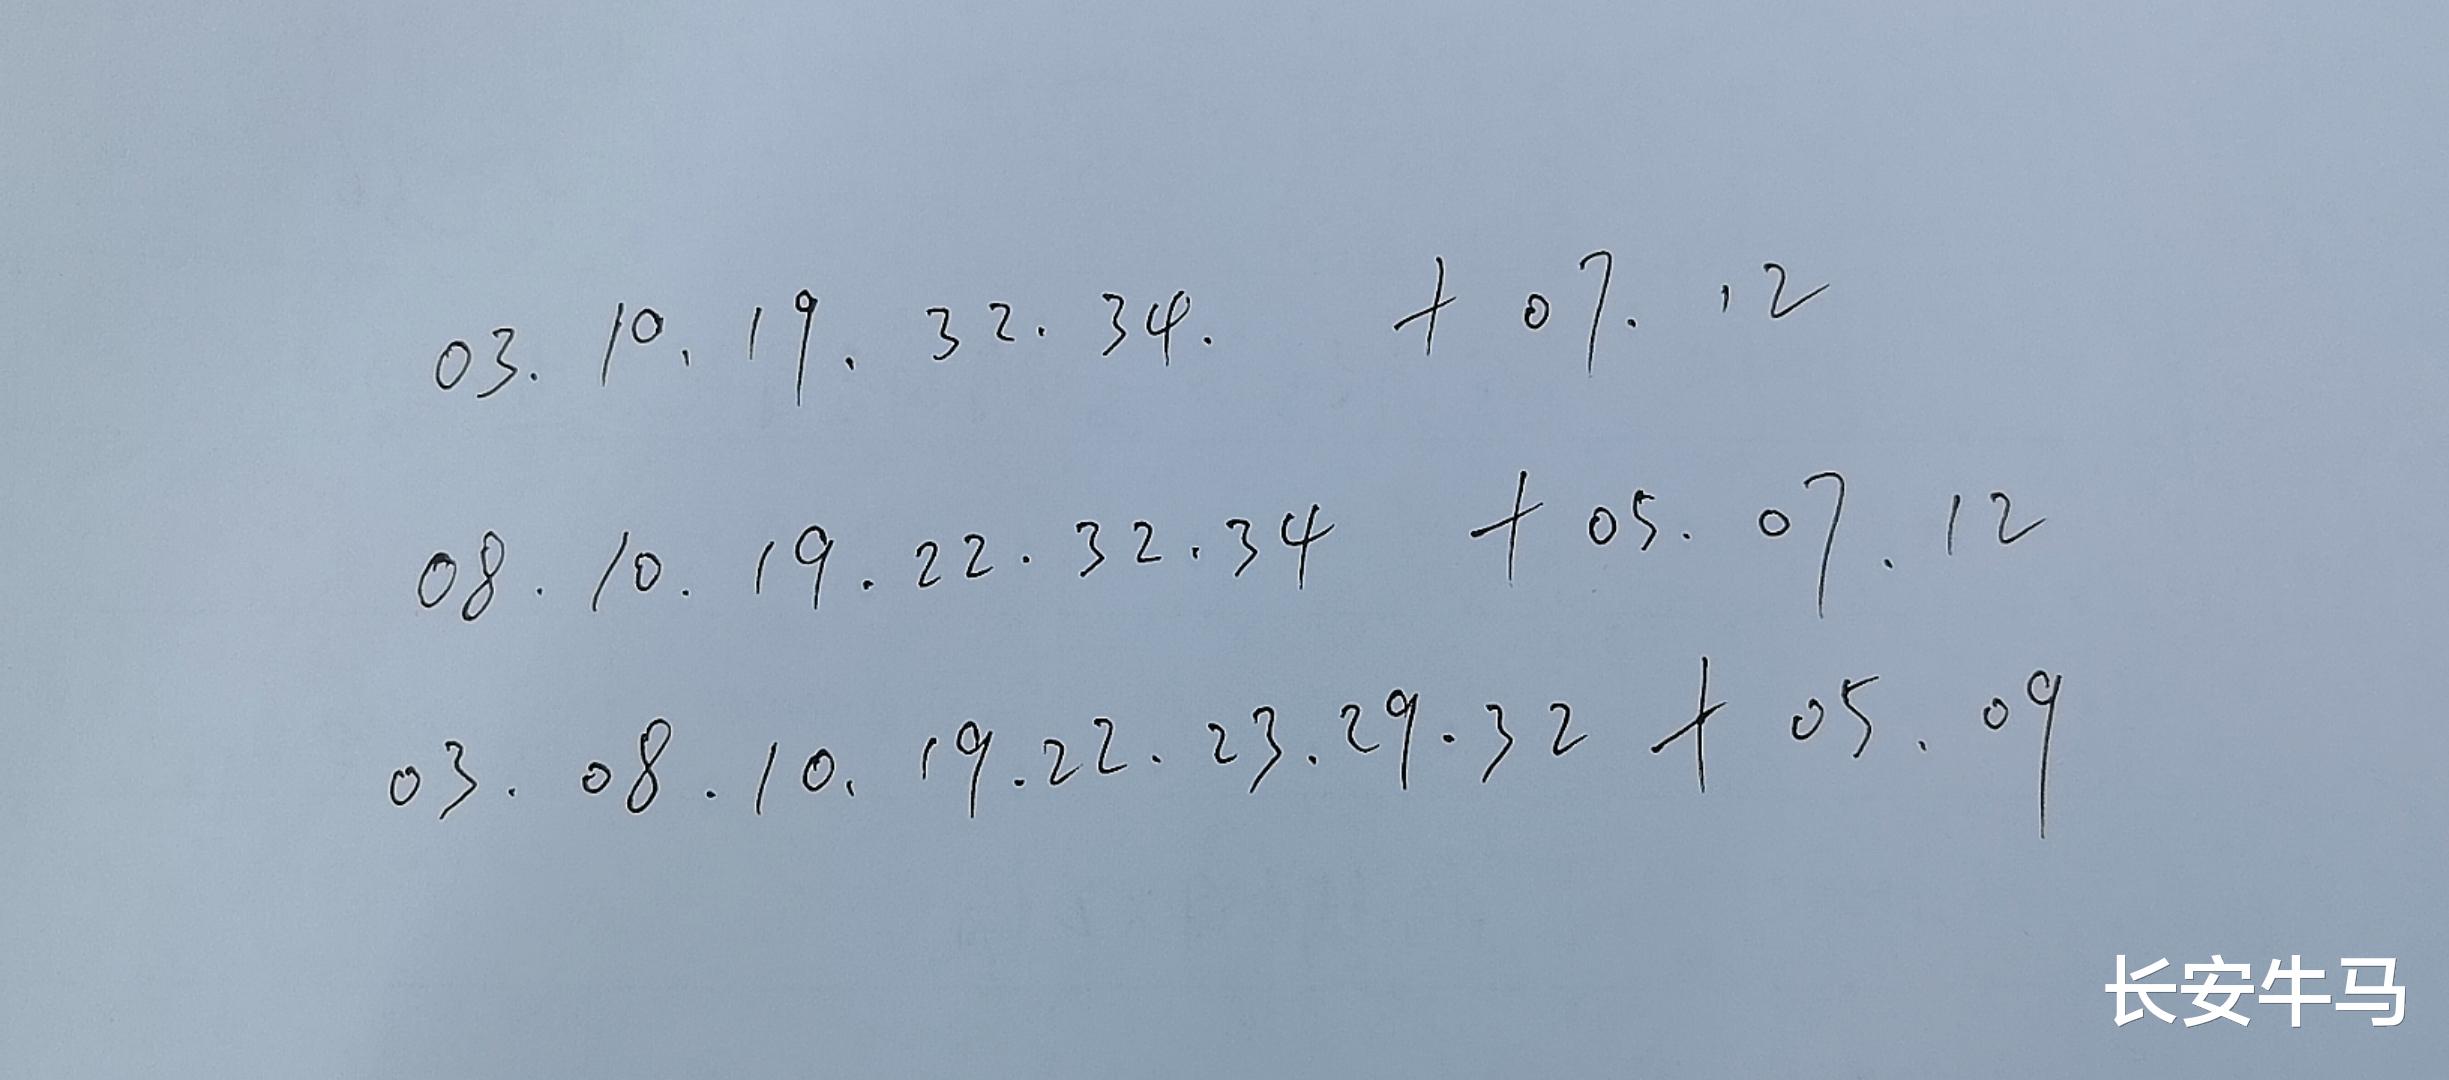 03. 10. 19. 32. 34. + 07. 12
08. 10. 19. 22. 32. 34 + 05. 07. 12
03. 08. 10. 19. 22. 23. 29. 32 + 05. 09
长安牛马